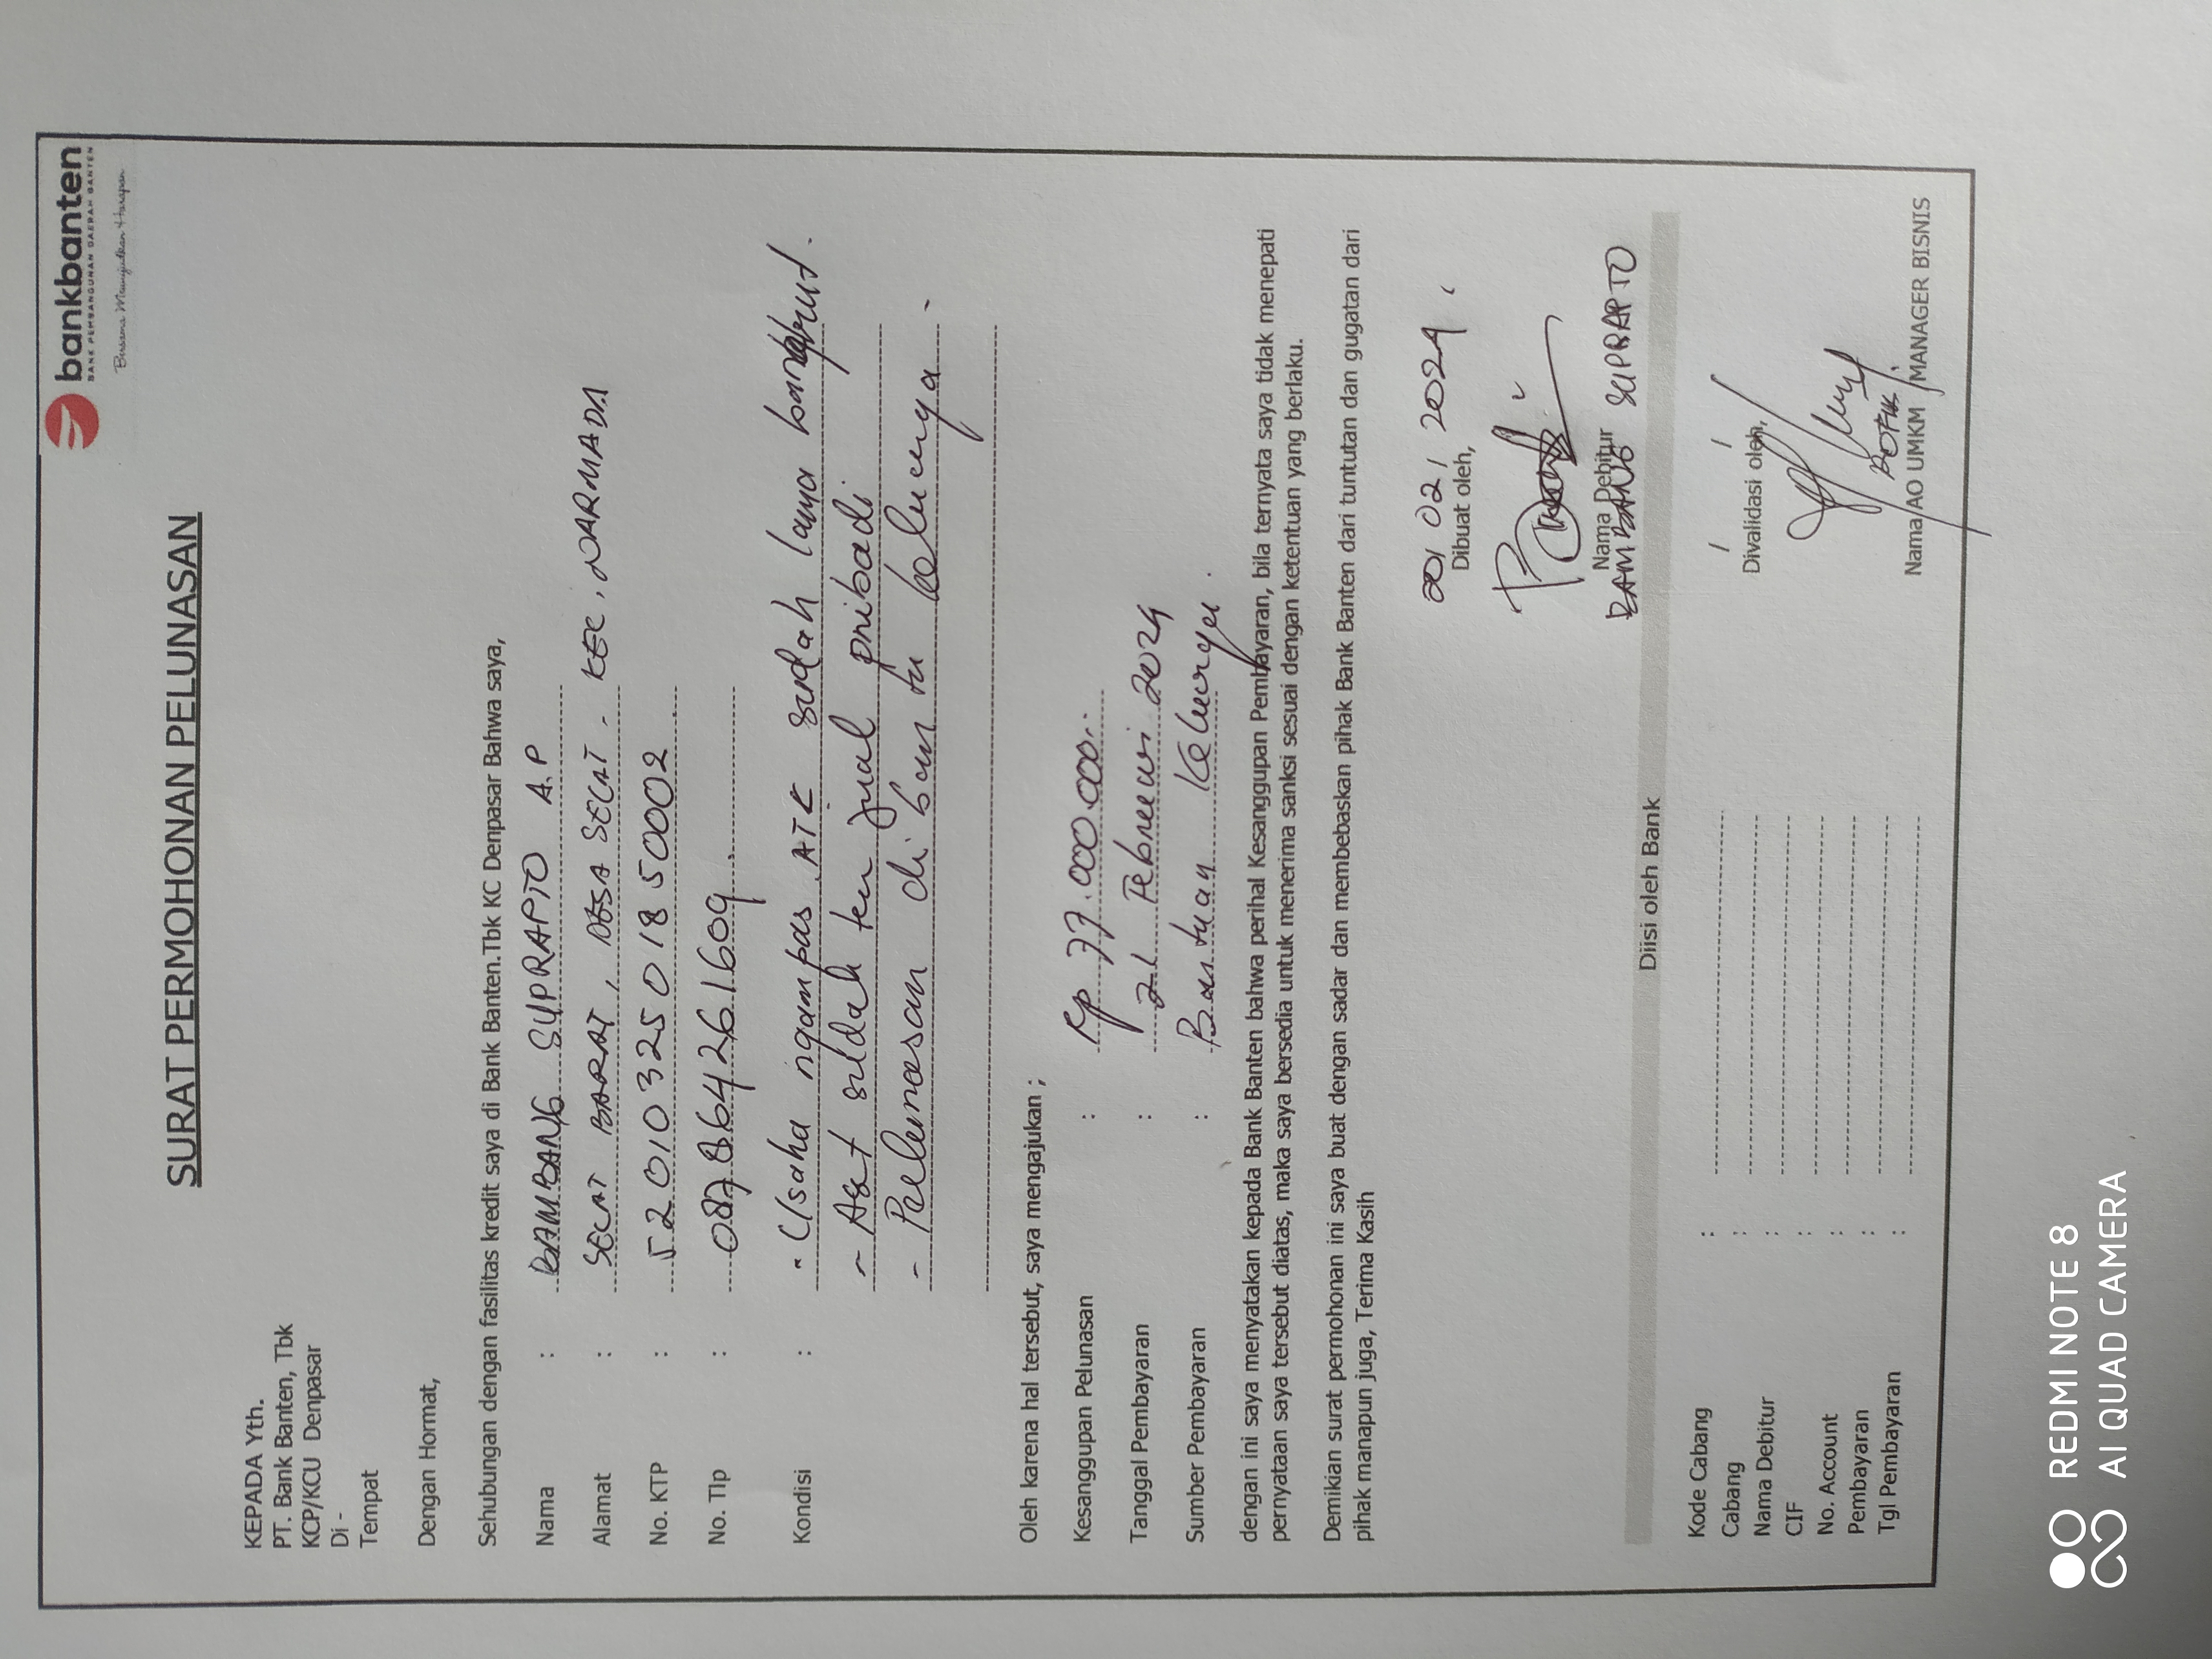 bankbanten
BANK PEMBANGUNAN DAERAH BANTEN
Bersama Mewujudkan Harapan
SURAT PERMOHONAN PELUNASAN
KEPADA Yth.
PT. Bank Banten, Tbk
KCP/KCU Denpasar
Di -
Tempat
Dengan Hormat,
Sehubungan dengan fasilitas kredit saya di Bank Banten.Tbk KC Denpasar Bahwa saya,
Nama : BAMBANG SUPRAPTO A.P
Alamat : SECAT BARAT, DESA SECAT - KEC. NARMADA
No. KTP : 5201032501850002
No. Tlp : 087864261609
Kondisi : - Usaha ngampas ATK sudah lama bangkrut.
- Aset sudah ter jual pribadi
- Pelunasan di bantu keluarga.
Oleh karena hal tersebut, saya mengajukan ;
Kesanggupan Pelunasan : Rp 77.000.000.-
Tanggal Pembayaran : 21 Februari 2024
Sumber Pembayaran : Bantuan Keluarga.
dengan ini saya menyatakan kepada Bank Banten bahwa perihal Kesanggupan Pembayaran, bila ternyata saya tidak menepati
pernyataan saya tersebut diatas, maka saya bersedia untuk menerima sanksi sesuai dengan ketentuan yang berlaku.
Demikian surat permohonan ini saya buat dengan sadar dan membebaskan pihak Bank Banten dari tuntutan dan gugatan dari
pihak manapun juga, Terima Kasih
/ 02 / 2024
Dibuat oleh,
Nama Debitur
BAMBANG SUPRAPTO
Diisi oleh Bank
Kode Cabang :
Cabang :
Nama Debitur :
CIF :
No. Account :
Pembayaran :
Tgl Pembayaran :
/ /
Divalidasi oleh,
Nama AO UMKM / MANAGER BISNIS
REDMI NOTE 8
AI QUAD CAMERA